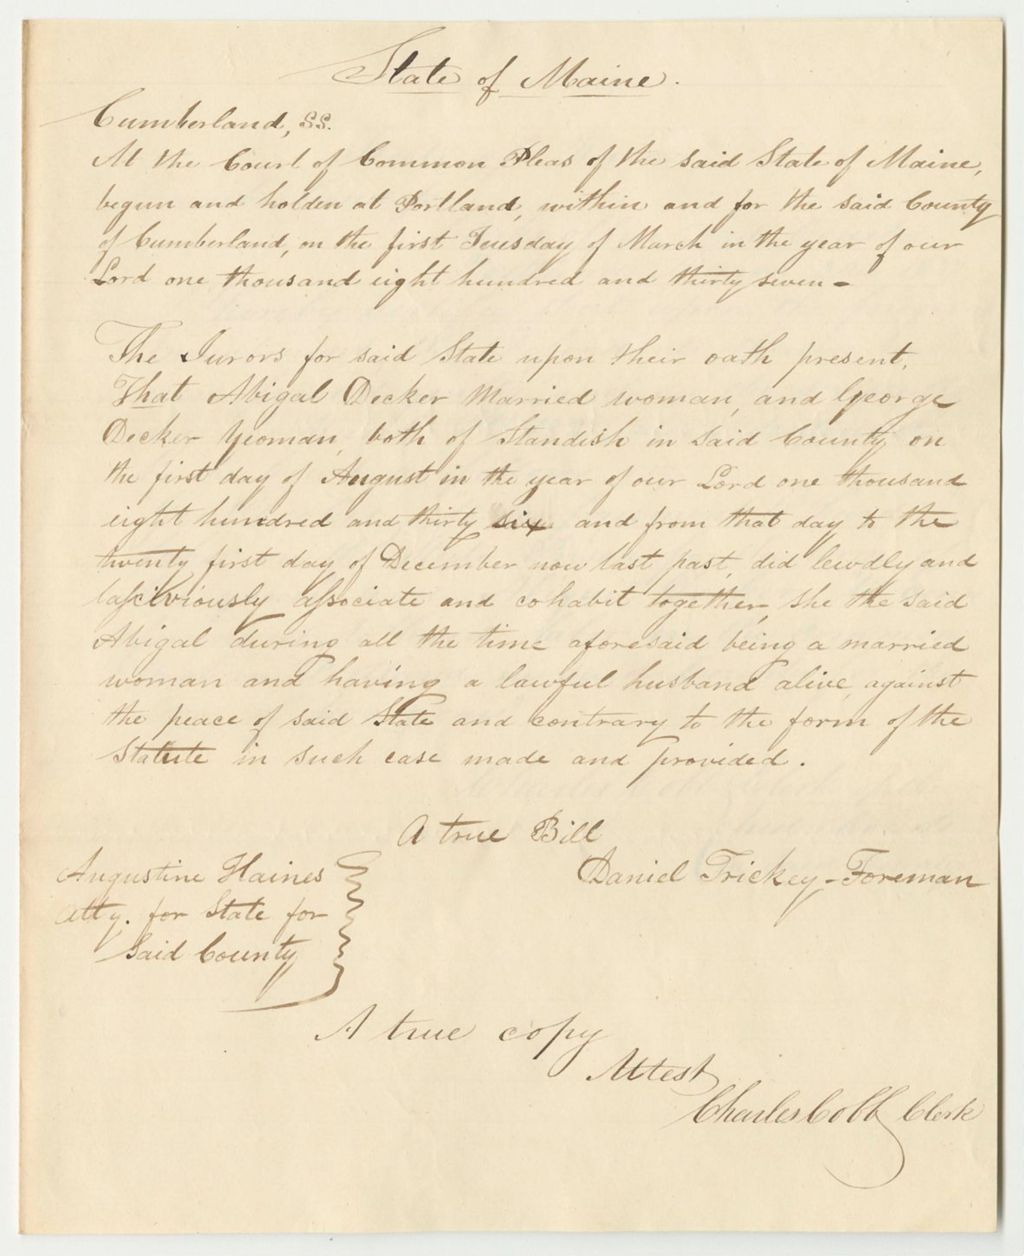 State of Maine.
Cumberland, SS.
At the Court of Common Pleas of the said State of Maine,
begun and holden at Portland, within and for the said County
of Cumberland, on the first Tuesday of March in the year of our
Lord one thousand eight hundred and thirty seven -
The Jurors for said State upon their oath present,
That Abigal Decker Married woman, and George
Decker Yeoman, both of Standish in said County on
the first day of August in the year of our Lord one thousand
eight hundred and thirty six and from that day to the
twenty first day of December now last past, did lewdly and
lasciviously associate and cohabit together, she the said
Abigal during all the time aforesaid being a married
woman and having a lawful husband alive, against
the peace of said State and contrary to the form of the
Statute in such case made and provided.
A true Bill
Daniel Trickey - Foreman
Augustine Haines
Atty. for State for
Said County
A true copy
Attest
Charles Cobb Clerk